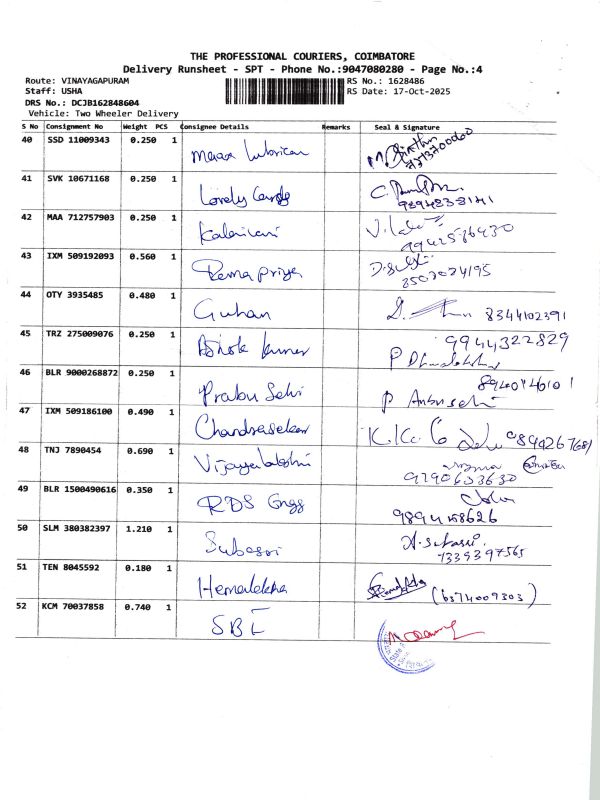 THE PROFESSIONAL COURIERS, COIMBATORE
Delivery Runsheet - SPT - Phone No.:9047080280 - Page No.:4
Route: VINAYAGAPURAM RS No.: 1628486
Staff: USHA RS Date: 17-Oct-2025
DRS No.: DCJB162848604
Vehicle: Two Wheeler Delivery
S No Consignment No Weight PCS Consignee Details Remarks Seal & Signature
40 SSD 11009343 0.250 1 Maax Lubrican
41 SVK 10671168 0.250 1 Lovely Cards
42 MAA 712757903 0.250 1 Kalaivani
43 IXM 509192093 0.560 1 Rema priya
44 OTY 3935485 0.480 1 Guhan 8344102391
45 TRZ 275009076 0.250 1 Ashok kumar 9944322829
46 BLR 9000268872 0.250 1 Prabu Selvi
47 IXM 509186100 0.490 1 Chandrasekar
48 TNJ 7890454 0.690 1 Vijayalakshmi
49 BLR 1500490616 0.350 1 RDS Engg
50 SLM 380382397 1.210 1 Subasri
51 TEN 8045592 0.180 1 Hemalekha (6374009303)
52 KCM 70037858 0.740 1 SBI